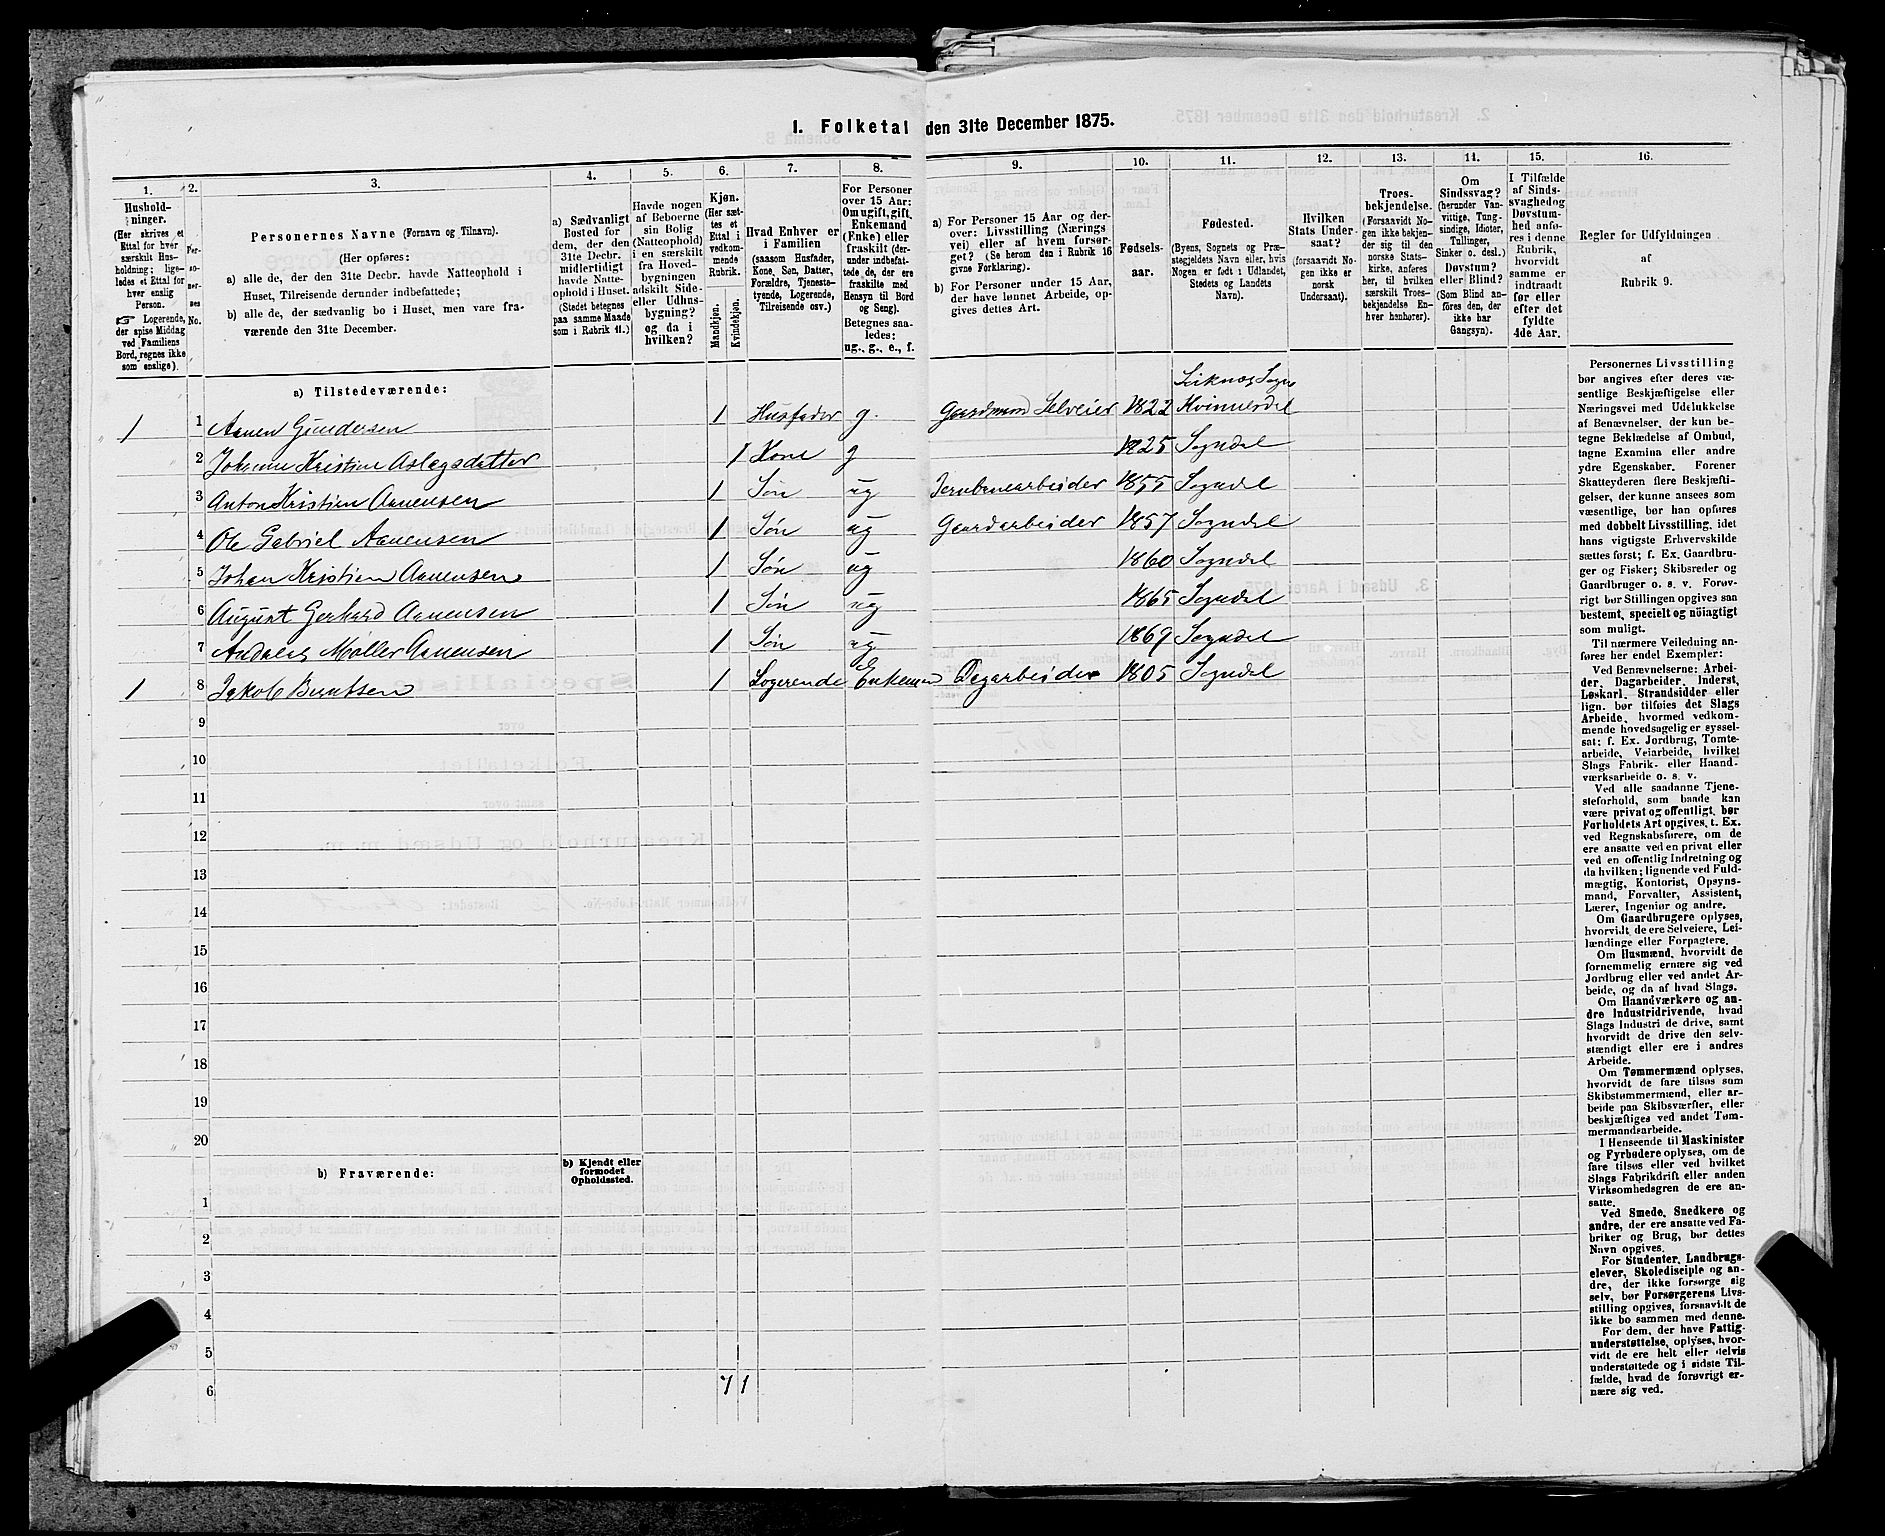 1. Folketal den 31te December 1875.
1.
2.
3.
4.
5.
6.
7.
8.
9.
10.
11.
12.
13.
14.
15.
16.
Hushold-
ninger.
(Her skrives et
Ettal for hver
særskilt Hus-
holdning; lige-
ledes et Ettal for
hver enslig
Person.
☞ Logerende,
der spise Middag
ved Familiens
Bord, regnes ikke
som enslige).
Per-
so-
ner-
nes
No.
Personernes Navne (Fornavn og Tilnavn).
(Her opføres:
a) alle de, der den 31te Decbr. havde Natteophold i
Huset, Tilreisende derunder indbefattede;
b) alle de, der sædvanlig bo i Huset, men vare fra-
værende den 31te December.
a) Sædvanligt
Bosted for
dem, der den
31te Decbr.
midlertidigt
havde Natte-
ophold i Huset.
(Stedet betegnes
paa samme Maade
som i Rubrik 11.)
Havde nogen
af Beboerne
sin Bolig
(Natteophold)
i en særskilt
fra Hoved-
bygningen
adskilt Side-
eller Udhus-
bygning?
og da i
hvilken?
Kjøn.
(Her sæt-
tes et
Ettal i
vedkom-
mende
Rubrik.
Mandkjøn.
Kvindekjøn.
Hvad Enhver er
i Familien
(saasom Husfader,
Kone, Søn, Datter,
Forældre, Tjeneste-
tyende, Logerende,
Tilreisende osv.)
For Personer
over 15 Aar:
Om ugift, gift,
Enkemand
(Enke) eller
fraskilt (der-
under indbefat-
tede de, der ere
fraskilte med
Hensyn til Bord
og Seng).
Betegnes saa-
ledes:
ug., g., e., f.
a) For Personer 15 Aar og der-
over: Livsstilling (Nærings
vei) eller af hvem forsør-
get? (Se herom den i Rubrik 16
givne Forklaring).
b) For Personer under 15 Aar,
der have lønnet Arbeide, op-
gives dettes Art.
Fødsels-
aar.
Fødested.
(Byens, Sognets og Præ-
stegjeldets Navn eller, hvis
Nogen er født i Udlandet,
Stedets og Landets
Navn).
Hvilken
Stats Under-
saat?
(forsaavidt No-
gen ikke er
norsk
Undersaat).
Troes-
bekjendelse.
(Forsaavidt No-
gen ikke bekjen-
der sig til den
norske Stats-
kirke, anføres
her, til hvilken
særskilt Troes-
bekjendelse En-
hver henhører).
Om
Sindssvag?
(herunder Van-
vittige, Tung-
sindige, Idioter,
Tullinger,
Sinker o. desl.)
Døvstum?
eller Blind?
(Som Blind an-
føres den, der
ikke har
Gangsyn).
I Tilfælde
af Sinds-
svaghed og
Døvstum-
hed anfø-
res i denne
Rubrik,
hvorvidt
samme er
indtraadt
før eller
efter det
fyldte
4de Aar.
Regler for Udfyldningen
af
Rubrik 9.
a) Tilstedeværende:
1 1 Aanen Gundersen 1 Husfader g. Gaardmand Selveier 1822 Kvinnesdal
2 Johanne Kristine Aslagsdatter 1 Kone g 1825 Sogndal
3 Anton Kristien Aanensen 1 Søn ug Jernbanearbeider 1855 Sogndal
4 Ole Gabriel Aanensen 1 Søn ug Gaardarbeider 1857 Sogndal
5 Johan Kristien Aanensen 1 Søn ug 1860 Sogndal
6 August Gerhard Aanensen 1 Søn ug 1865 Sogndal
7 Andreas Møller Aanensen 1 Søn ug 1869 Sogndal
1 8 Jakob Berntsen 1 Logerende Enkeman Dagarbeider 1805 Sogndal
9
10
11
12
13
14
15
16
17
18
19
20
b) Fraværende:
b) Kjendt eller
formodet
Opholdssted.
1
2
3
4
5
6
7 1
Personernes Livsstilling
bør angives efter deres væ-
sentlige Beskjæftigelse eller
Næringsvei med Udelukkelse
af Benævnelser, der kun be-
tegne Beklædelse af Ombud,
tagne Examina eller andre
ydre Egenskaber. Forener
Skatteyderen flere Beskjæfti-
gelser, der kunne ansees som
væsentlige, bør han opføres
med dobbelt Livsstilling, idet
hans vigtigste Erhvervskilde
sættes først; f. Ex. Gaardbru-
ger og Fisker; Skibsreder og
Gaardbruger o. s. v. Forøv-
rigt bør Stillingen opgives saa
bestemt, specielt og nöiagtigt
som muligt.
Til nærmere Veiledning an-
føres her endel Exempler:
Ved Benævnelserne: Arbei-
der, Dagarbeider, Inderst,
Løskarl, Strandsidder eller
lign. bør tilføies det Slags
Arbeide, hvormed vedkom-
mende hovedsagelig er syssel-
sat; f. Ex. Jordbrug, Tomte-
arbeide, Veiarbeide, hvilket
Slags Fabrik- eller Haand-
værksarbeide o. s. v.
Ved alle saadanne Tjene-
steforhold, som baade kan
være privat og offentligt, bør
Forholdets Art opgives, t. Ex.
ved Regnskabsførere, om de
ere ansatte ved en privat eller
ved en offentlig Indretning og
da hvilken; lignende ved Fuld-
mægtig, Kontorist, Opsyns-
mand, Forvalter, Assistent,
Lærer, Ingeniør og andre.
Om Gaardbrugere oplyses,
hvorvidt de ere Selveiere, Lei-
lændinge eller Forpagtere.
Om Husmænd, hvorvidt de
fornemmelig ernære sig ved
Jordbrug eller ved andet Ar-
beide, og da af hvad Slags.
Om Haandværkere og an-
dre Industridrivende, hvad
Slags Industri de drive, samt
hvorvidt de drive den selv-
stændigt eller ere i andres
Arbeide.
Om Tømmermænd oplyses,
hvorvidt de fare tilsøs som
Skibstømmermænd, eller ar-
beide paa Skibsværfter, eller
beskjæftiges ved andet Tøm-
mermandsarbeide.
I Henseende til Maskinister
og Fyrbødere oplyses, om de
fare tilsøs eller ved hvilket
Slags Fabrikdrift eller anden
Virksomhedsgren de ere an-
satte.
Ved Smede, Snedkere og
andre, der ere ansatte ved Fa-
briker og Brug, bør dettes
Navn opgives.
For Studenter, Landbrugs-
elever, Skoledisciple og an-
dre, der ikke forsørge sig
selv, bør Forsørgerens Livs-
stilling opgives, forsaavidt de
ikke bo sammen med denne.
For dem, der have Fattig-
understøttelse, oplyses, hvor-
vidt de ere helt eller delvis
understøttede og i sidste Til-
fælde, hvad de forøvrigt er-
nære sig ved.